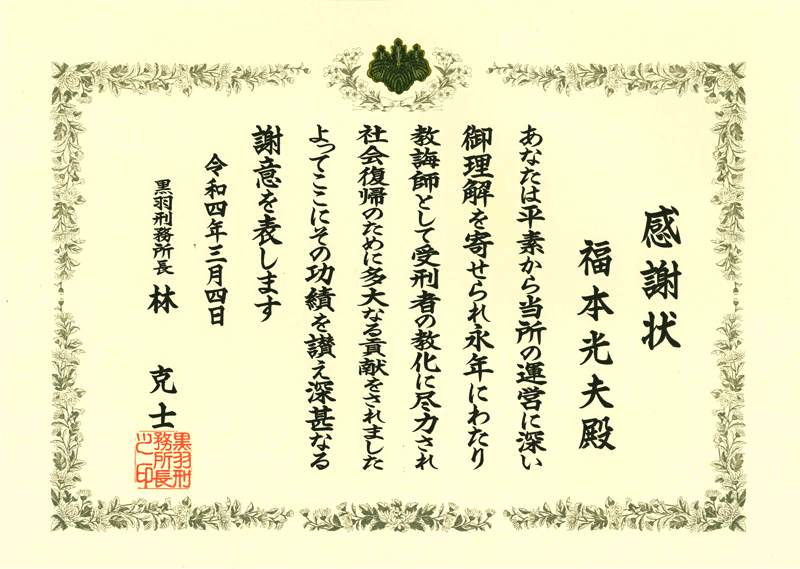 感謝状
福本光夫殿
あなたは平素から当所の運営に深い
御理解を寄せられ永年にわたり
教誨師として受刑者の教化に尽力され
社会復帰のために多大なる貢献をされました
よってここにその功績を讃え深甚なる
謝意を表します
令和四年三月四日
黒羽刑務所長 林 克士
黒羽刑
務所長
之印